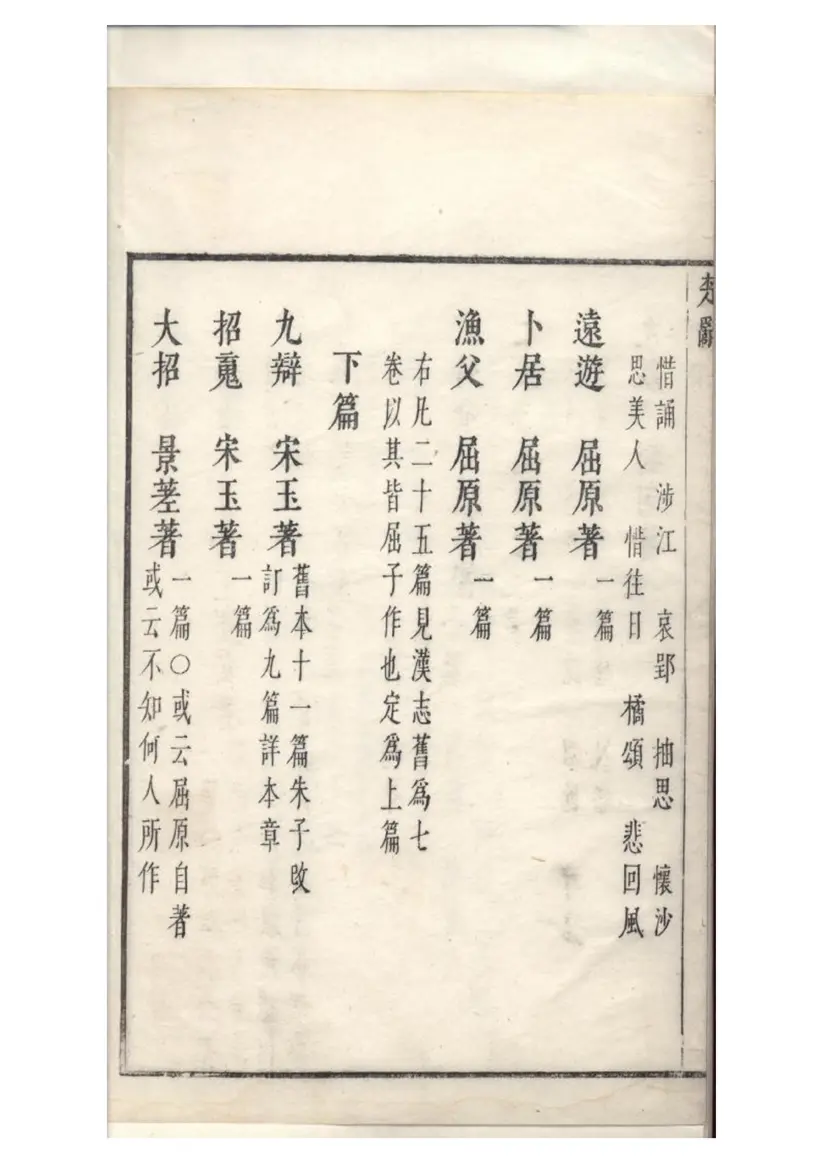 楚辭
惜誦 涉江 哀郢 抽思 懷沙
思美人 惜往日 橘頌 悲回風
遠遊 屈原著 一篇
卜居 屈原著 一篇
漁父 屈原著 一篇
右凡二十五篇見漢志舊爲七
卷以其皆屈子作也定爲上篇
下篇
九辯 宋玉著 舊本十一篇朱子改
訂爲九篇詳本章
招䰟 宋玉著 一篇
大招 景差著 一篇〇或云屈原自著
或云不知何人所作